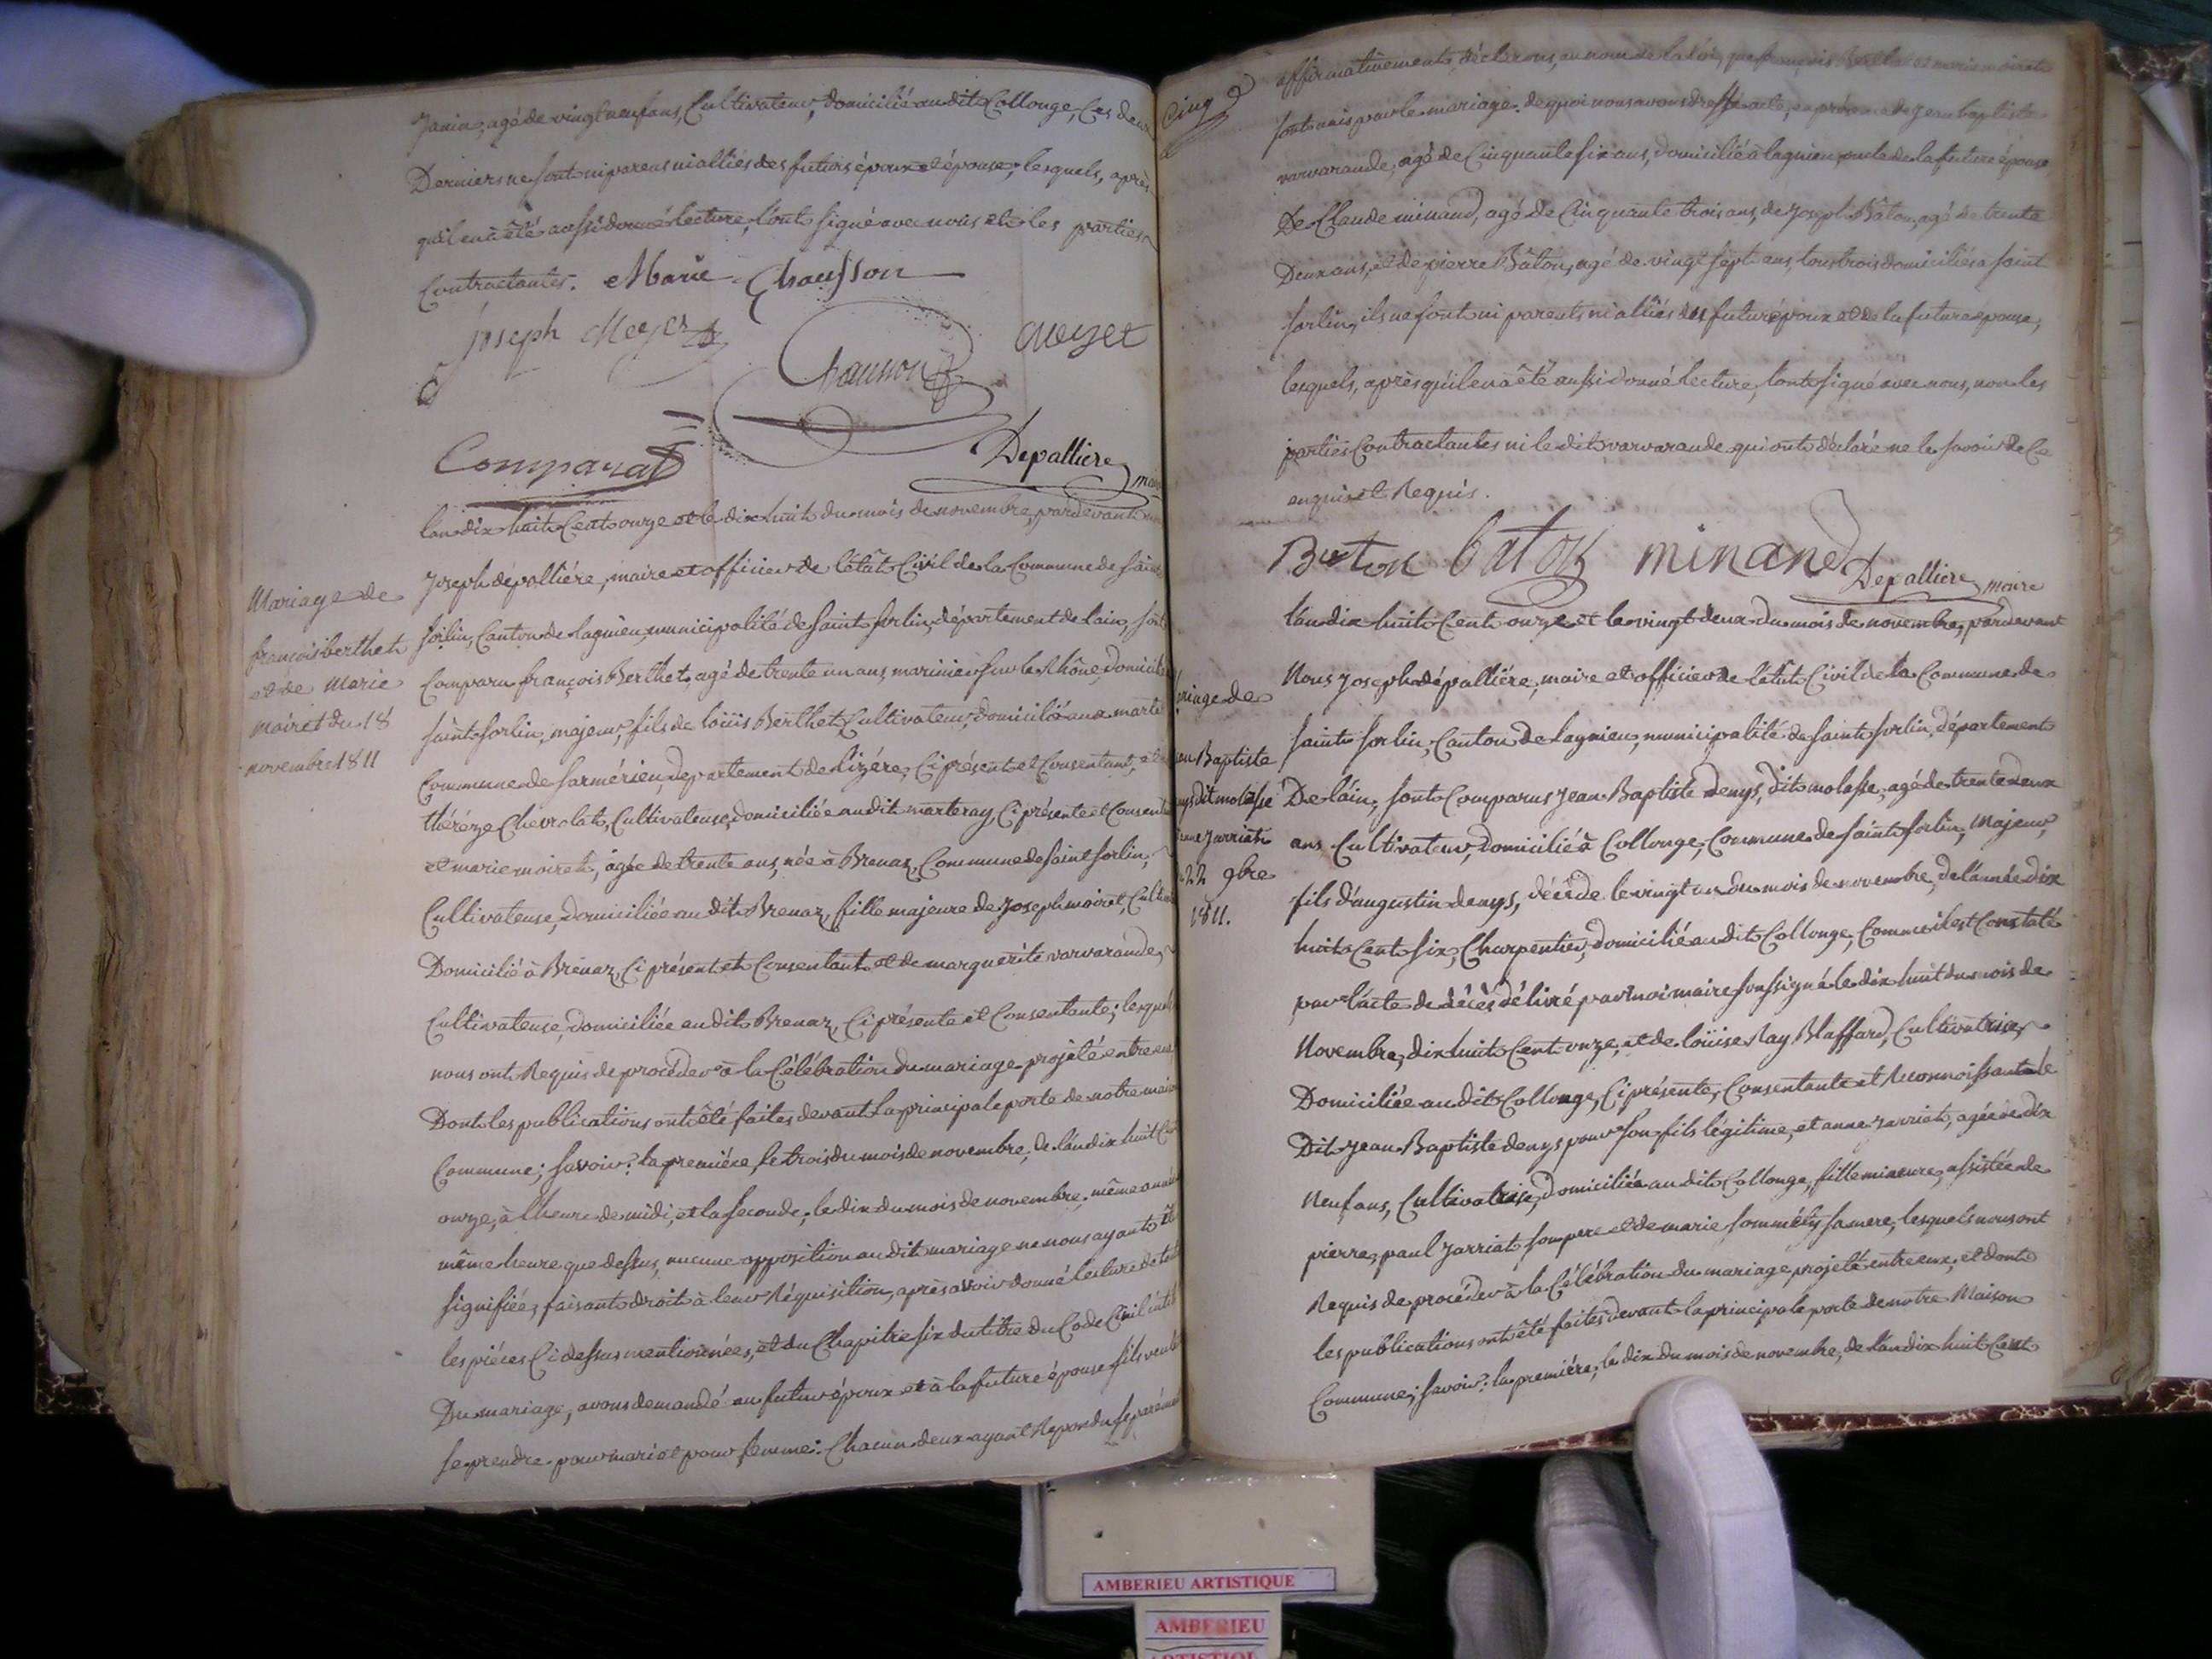 Janin, agé de vingt neuf ans, Cultivateur, domicilié au dit Collonge, Ces deux
Derniers ne sont ni parens ni alliés des futurs époux et épouse; lesquels, après
qu'il en à été aussi donné lecture, l'ont signé avec nous et les parties
Contractantes. Marie Chausson
joseph Meyer
Meyet
Chausson
Comparat
Depalliere maire
lan dix huit Cent onze et le dix huit du mois de novembre, pardevant
Joseph dépalliére, maire et officier de l'état Civil de la Commune de Saint
Sorlin, Canton de lagnieu, municipalité de Saint Sorlin, département de lain, sont
Comparu françois Berthet, agé de trente un ans, marinier sur le Rhône, domicilié
Saint Sorlin, majeur, fils de loüis Berthet, Cultivateur, domicilié aux marte
Commune de Sarmérieu, département de lizére, Ci présent et Consentant, et
théréze Chevrolat, Cultivateuse, domiciliée au dit marteray, Ci présente et Consen
et marie moiret, âgée de trente ans, née à Brenaz, Commune de Saint Sorlin,
Cultivateuse, domiciliée au dit Brenaz, fille majeure de Joseph moiret, Cultiva
Domicilié à Brénaz, Ci présent et Consentant et de marguérite varvarande,
Cultivateuse, domiciliée au dit Brenaz, Ci présente et Consentante; lesquels
nous ont Requis de procéder à la Célébration du mariage projeté entre eux
Dont les publications ont été faites devant la principale porte de notre maison
Commune; Savoir: la premiére, le trois du mois de novembre, de l'an dix huit Cent
onze, à l'heure de midi, et la Seconde, le dix du mois de novembre, même année
même heure que dessus, aucune opposition au dit mariage ne nous ayant été
signifiée, faisant droit à leur Réquisition, après avoir donné lecture de tout
les piéces Ci dessus mentionnées, et du Chapitre six du titre du Code Civil intit
Du mariage, avons demandé au futur époux et à la future épouse s'ils veul
se prendre pour mari et pour femme: Chacun deux ayant Répondu séparém
Mariage de
françois berthet
et de Marie
moiret du 18
novembre 1811
Cinq
affirmativement, déclarons, au nom de la loi, que françois Berthet et marie moiret
sont unis par le mariage. de quoi nous avons dressé acte, en présence de Jean baptiste
varvarande, agé de Cinquante six ans, domicilié à lagnieu, oncle de la future épouse
De Claude minand, agé de Cinquante trois ans, de Joseph Bâton, agé de trente
Deux ans, et de pierre Bâton, agé de vingt sept ans, tous trois domiciliés a saint
sorlin, ils ne sont ni parents ni alliés du futur époux et de la future épouse,
lesquels, après qu'il en à été aussi donné lecture, l'ont signé avec nous, non les
parties Contractantes ni le dit varvarande qui ont déclaré ne le savoir de Ce
enquis et Requis.
Baton baton minand Depalliere maire
l'an dix huit Cent onze et le vingt deux du mois de novembre, pardevant
Nous Joseph dépalliére, maire et officier de l'état Civil de la Commune de
Saint Sorlin, Canton de lagnieu, municipalité de Saint Sorlin, département
De láin, sont Comparus Jean Baptiste denys, dit molasse, agé de trente deux
ans Cultivateur, domicilié à Collonge, Commune de Saint Sorlin, Majeur,
fils d'augustin denys, décédé le vingt un du mois de novembre, de l'année dix
huit Cent six, Charpentier, domicilié au dit Collonge, Comme il est Constaté
par l'acte de décès délivré par moi maire soussigné le dix huit du mois de
Novembre, dix huit Cent onze, et de loüise Ray Blaffard, Cultivatrice,
Domiciliée au dit Collonge, Ci présente, Consentante et Reconnoissant le
Dit Jean Baptiste denys pour son fils légitime, et anne Jarriat, agée de dix
Neuf ans, Cultivatrice, domiciliée au dit Collonge, fille mineure, assistée de
pierre paul Jarriat son pere et de marie sa mere, lesquels nous ont
Requis de procéder à la Célébration du mariage projeté entre eux, et dont
les publications ont été faites devant la principale porte de notre Maison
Commune; savoir: la premiére, le dix du mois de novembre, de l'an dix huit Cent
riage de
an Baptiste
nys dit molasse
anne Jarriat
22 9bre
1811.
AMBERIEU ARTISTIQUE
AMBERIEU
ARTISTIQUE